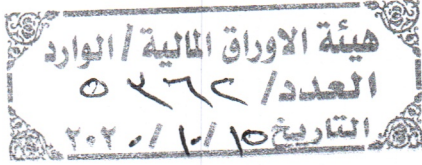 هيئة الاوراق المالية / الوارد
العدد / ٥٣٦٢
التاريخ ١٥ / ١٠ / ٢٠٢٠